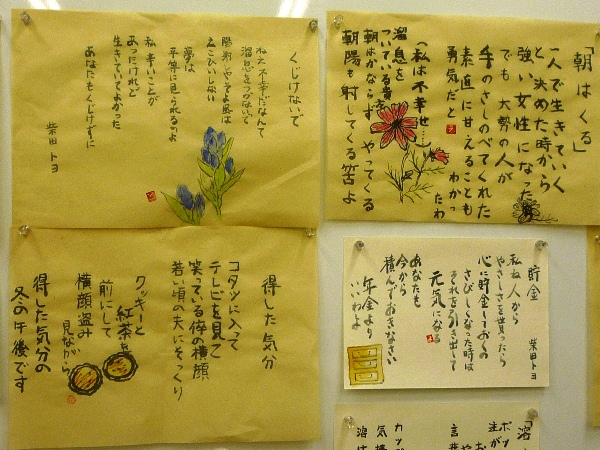 くじけないで
ねえ 不幸だなんて
溜息をつかないで
陽射しやそよ風は
えこひいきしない
夢は
平等に見られるのよ
私 辛いことが
あったけれど
生きていてよかった
あなたもくじけずに
柴田トヨ
「朝はくる」
一人で生きていく
と決めた時から
強い女性になったの
でも 大勢の人が
手をさしのべてくれた
素直に甘えることも
勇気だと わかっ
たわ
(私は不幸せ…)
溜息を
ついている貴方
朝はかならず やってくる
朝陽も射してくる筈よ
得した気分
コタツに入って
テレビを見て
笑っている倅の横顔
若い頃の夫にそっくり
クッキーと
紅茶を
前にして
横顔盗み
見ながら
得した気分の
冬の午後です
貯金
柴田トヨ
私ね 人から
やさしさを貰ったら
心に貯金しておくの
さびしくなった時は
それを引き出して
元気になる
あなたも
今から
積んでおきなさい
年金より
いいわよ
「溶
ポッ
注が
お
や
言葉
カップ
気持
溶け